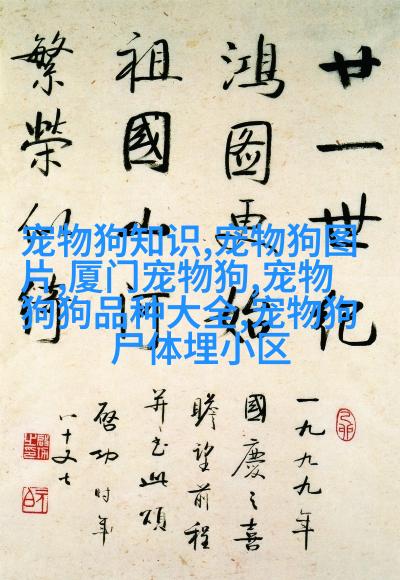 宠物狗知识,宠物狗图
片,厦门宠物狗,宠物
狗狗品种大全,宠物狗
尸体埋小区
廿一世纪
鸿图更始
祖國山河
繁榮似綺
一九九九年
國慶之喜
瞻望前程
并書此頌
啓功時年
八十又七